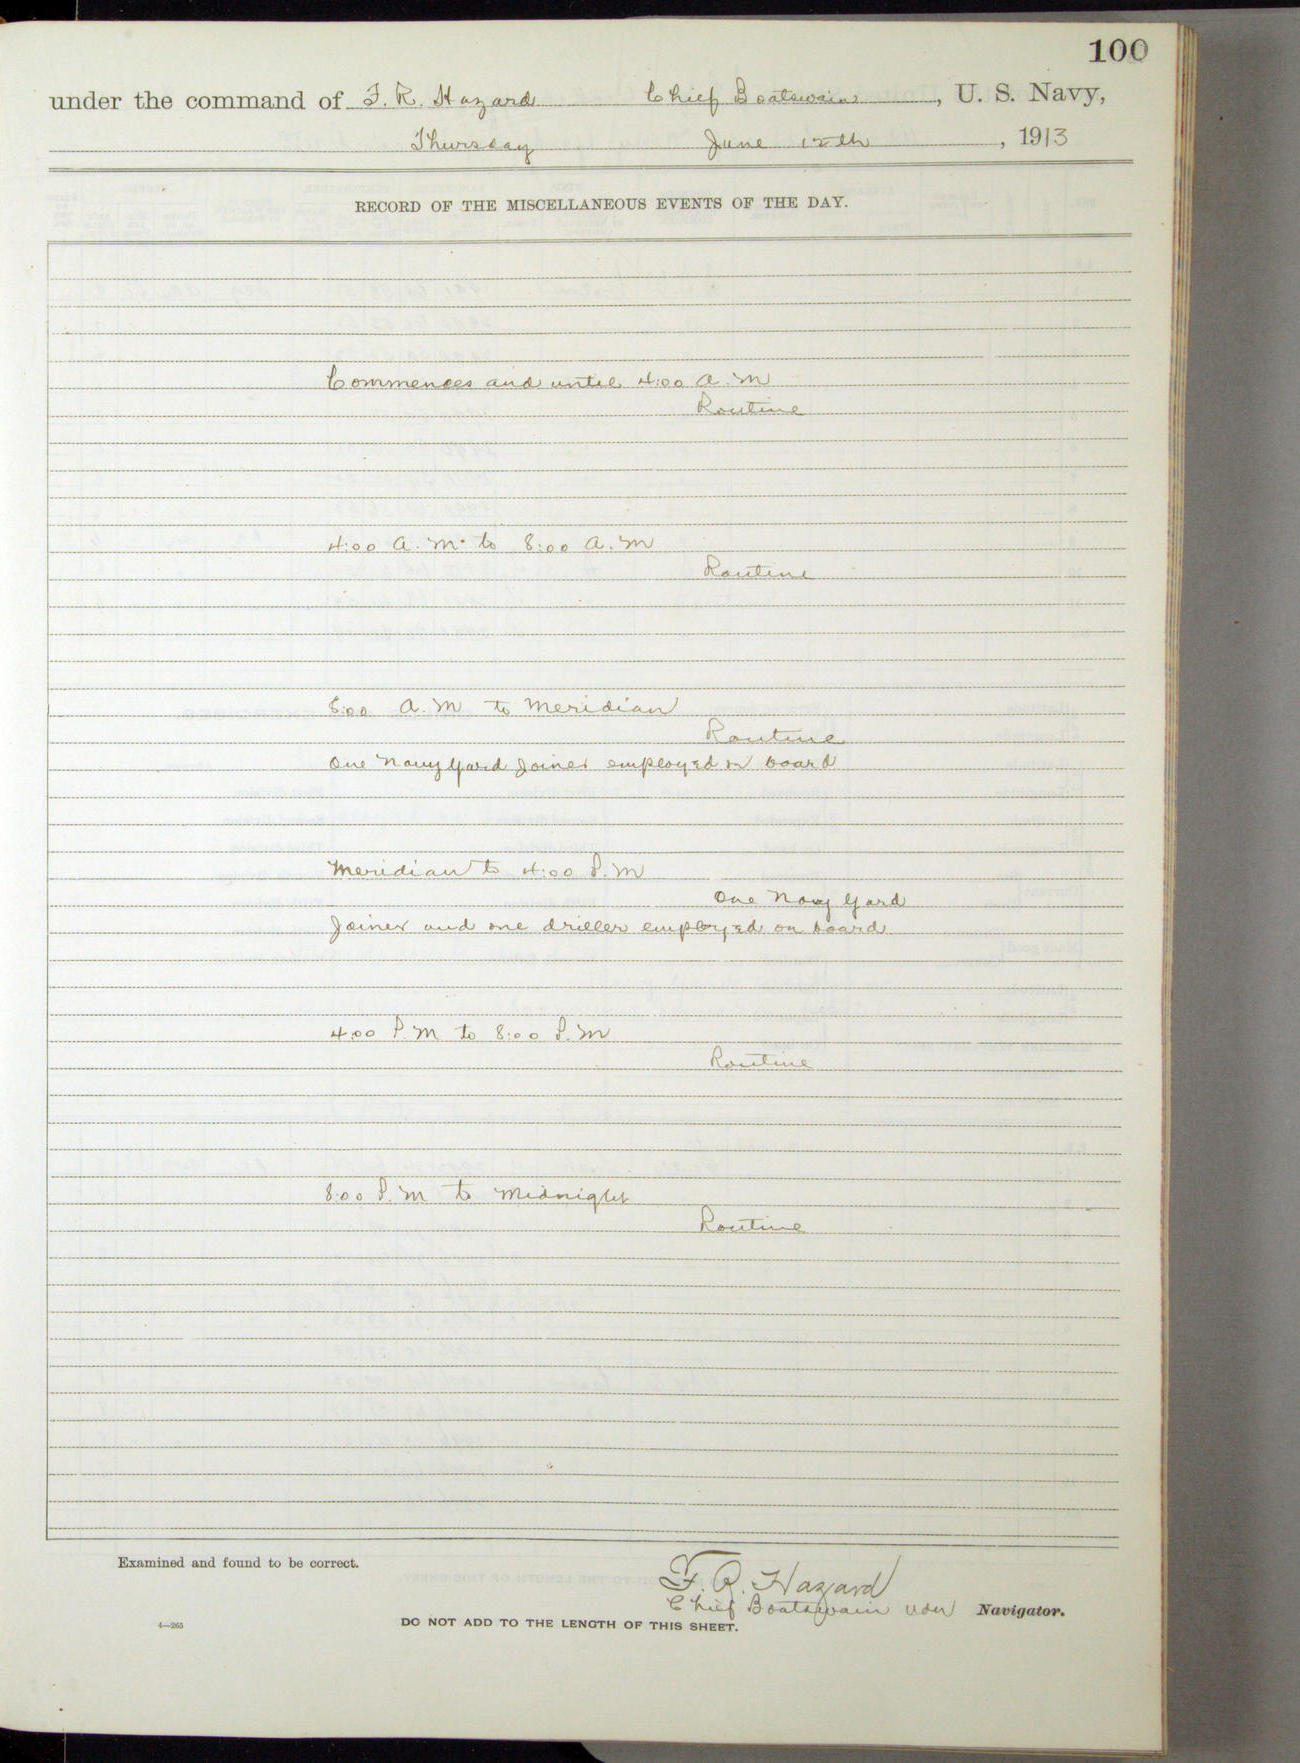 100
under the command of F. R. Hazard Chief Boatswain, U. S. Navy,
Thursday June 12th, 1913
RECORD OF THE MISCELLANEOUS EVENTS OF THE DAY.
Commences and until 4:00 A.M
Routine
4:00 A.M. to 8:00 A.M
Routine
8:00 A.M to Meridian
Routine
One Navy Yard Joiner employed on board
Meridian to 4:00 P.M
One Navy Yard
Joiner and one driller employed on board
4:00 P.M to 8:00 P.M
Routine
8:00 P.M to Midnight
Routine
Examined and found to be correct.
F. R. Hazard
Chief Boatswain USN Navigator.
4—265
DO NOT ADD TO THE LENGTH OF THIS SHEET.